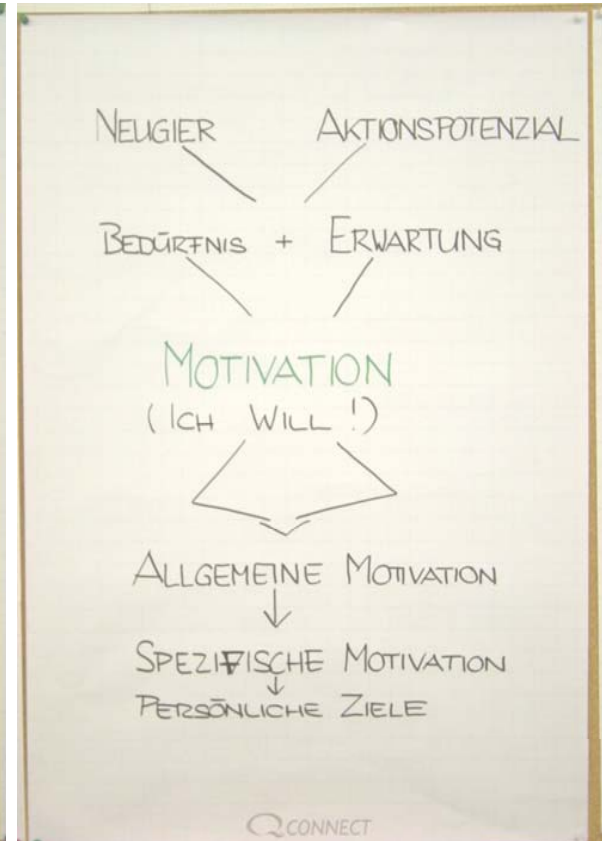 NEUGIER AKTIONSPOTENZIAL
BEDÜRFNIS + ERWARTUNG
MOTIVATION
(ICH WILL!)
ALLGEMEINE MOTIVATION
SPEZIFISCHE MOTIVATION
PERSÖNLICHE ZIELE
Q CONNECT